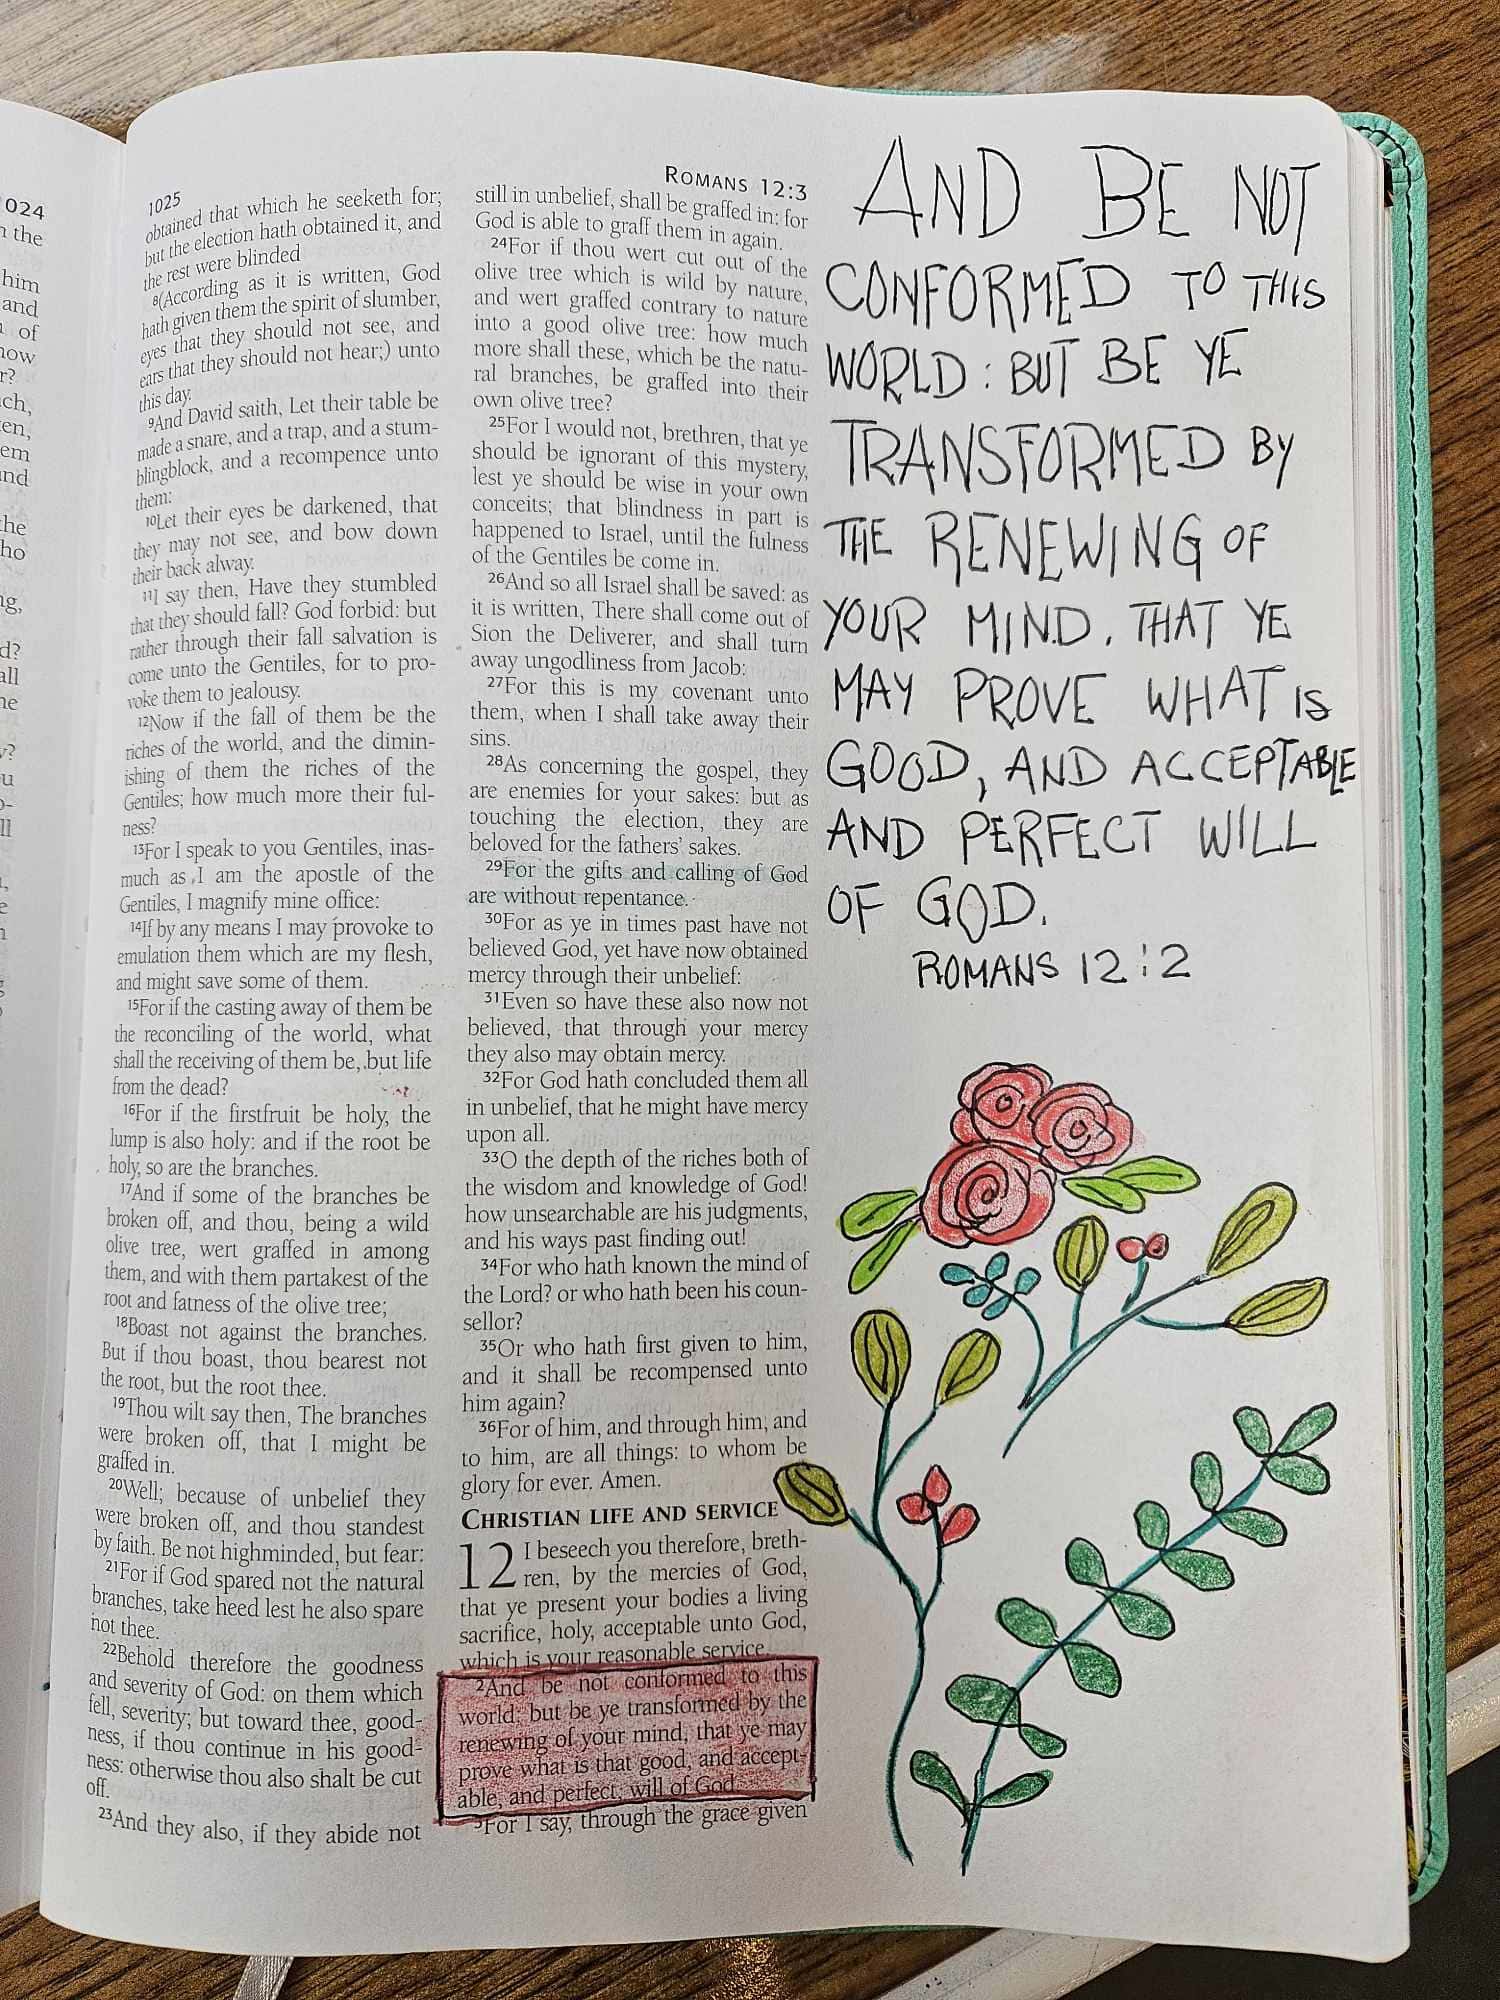 024
n the
him
and
of
now
r?
ch,
en,
em
nd
the
ho
ng,
d?
all
ne
y?
u
o-
ll
1025
obtained that which he seeketh for;
but the election hath obtained it, and
the rest were blinded
8(According as it is written, God
hath given them the spirit of slumber,
eyes that they should not see, and
ears that they should not hear;) unto
this day.
9And David saith, Let their table be
made a snare, and a trap, and a stum-
blingblock, and a recompence unto
them:
10Let their eyes be darkened, that
they may not see, and bow down
their back alway.
11I say then, Have they stumbled
that they should fall? God forbid: but
rather through their fall salvation is
come unto the Gentiles, for to pro-
voke them to jealousy.
12Now if the fall of them be the
riches of the world, and the dimin-
ishing of them the riches of the
Gentiles; how much more their ful-
ness?
13For I speak to you Gentiles, inas-
much as I am the apostle of the
Gentiles, I magnify mine office:
14If by any means I may provoke to
emulation them which are my flesh,
and might save some of them.
15For if the casting away of them be
the reconciling of the world, what
shall the receiving of them be, but life
from the dead?
16For if the firstfruit be holy, the
lump is also holy: and if the root be
holy, so are the branches.
17And if some of the branches be
broken off, and thou, being a wild
olive tree, wert graffed in among
them, and with them partakest of the
root and fatness of the olive tree;
18Boast not against the branches.
But if thou boast, thou bearest not
the root, but the root thee.
19Thou wilt say then, The branches
were broken off, that I might be
graffed in.
20Well; because of unbelief they
were broken off, and thou standest
by faith. Be not highminded, but fear:
21For if God spared not the natural
branches, take heed lest he also spare
not thee.
22Behold therefore the goodness
and severity of God: on them which
fell, severity; but toward thee, good-
ness, if thou continue in his good-
ness: otherwise thou also shalt be cut
off.
23And they also, if they abide not
ROMANS 12:3
still in unbelief, shall be graffed in: for
God is able to graff them in again.
24For if thou wert cut out of the
olive tree which is wild by nature,
and wert graffed contrary to nature
into a good olive tree: how much
more shall these, which be the natu-
ral branches, be graffed into their
own olive tree?
25For I would not, brethren, that ye
should be ignorant of this mystery,
lest ye should be wise in your own
conceits; that blindness in part is
happened to Israel, until the fulness
of the Gentiles be come in.
26And so all Israel shall be saved: as
it is written, There shall come out of
Sion the Deliverer, and shall turn
away ungodliness from Jacob:
27For this is my covenant unto
them, when I shall take away their
sins.
28As concerning the gospel, they
are enemies for your sakes: but as
touching the election, they are
beloved for the fathers' sakes.
29For the gifts and calling of God
are without repentance.
30For as ye in times past have not
believed God, yet have now obtained
mercy through their unbelief:
31Even so have these also now not
believed, that through your mercy
they also may obtain mercy.
32For God hath concluded them all
in unbelief, that he might have mercy
upon all.
33O the depth of the riches both of
the wisdom and knowledge of God!
how unsearchable are his judgments,
and his ways past finding out!
34For who hath known the mind of
the Lord? or who hath been his coun-
sellor?
35Or who hath first given to him,
and it shall be recompensed unto
him again?
36For of him, and through him, and
to him, are all things: to whom be
glory for ever. Amen.
CHRISTIAN LIFE AND SERVICE
12 I beseech you therefore, breth-
ren, by the mercies of God,
that ye present your bodies a living
sacrifice, holy, acceptable unto God,
which is your reasonable service.
2And be not conformed to this
world: but be ye transformed by the
renewing of your mind, that ye may
prove what is that good, and accept-
able, and perfect, will of God.
3For I say, through the grace given
AND BE NOT
CONFORMED TO THIS
WORLD: BUT BE YE
TRANSFORMED BY
THE RENEWING OF
YOUR MIND. THAT YE
MAY PROVE WHAT IS
GOOD, AND ACCEPTABLE
AND PERFECT WILL
OF GOD.
ROMANS 12:2